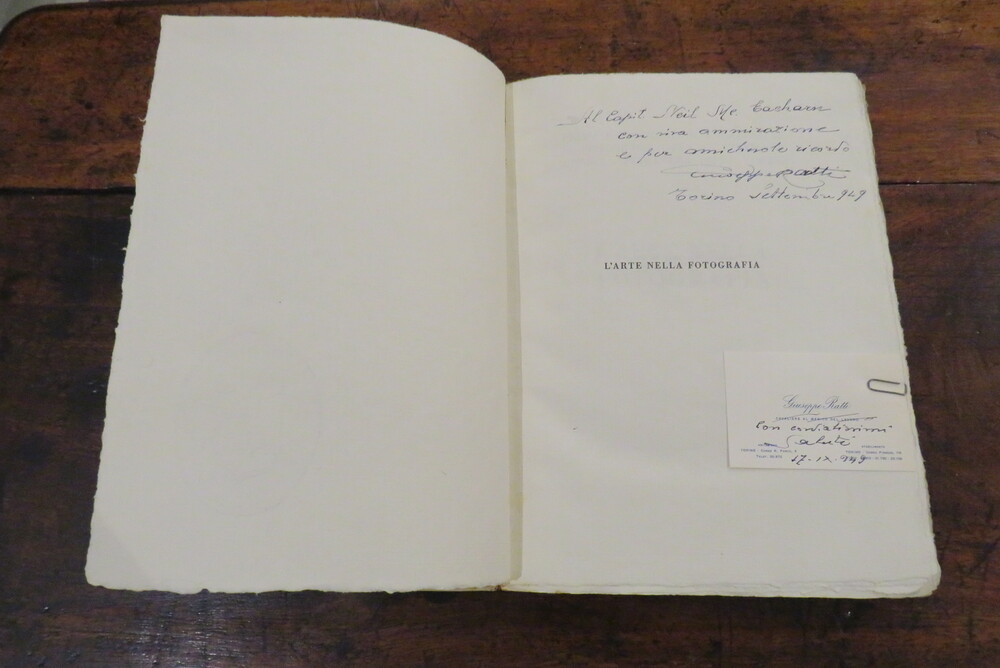 Al Capit Neil Mc Eacharn
con viva ammirazione
e per amichevole ricordo
Giuseppe Ratti
Torino Settembre 949
L'ARTE NELLA FOTOGRAFIA
Giuseppe Ratti
Con cordialissimi
Saluti
17-IX-949